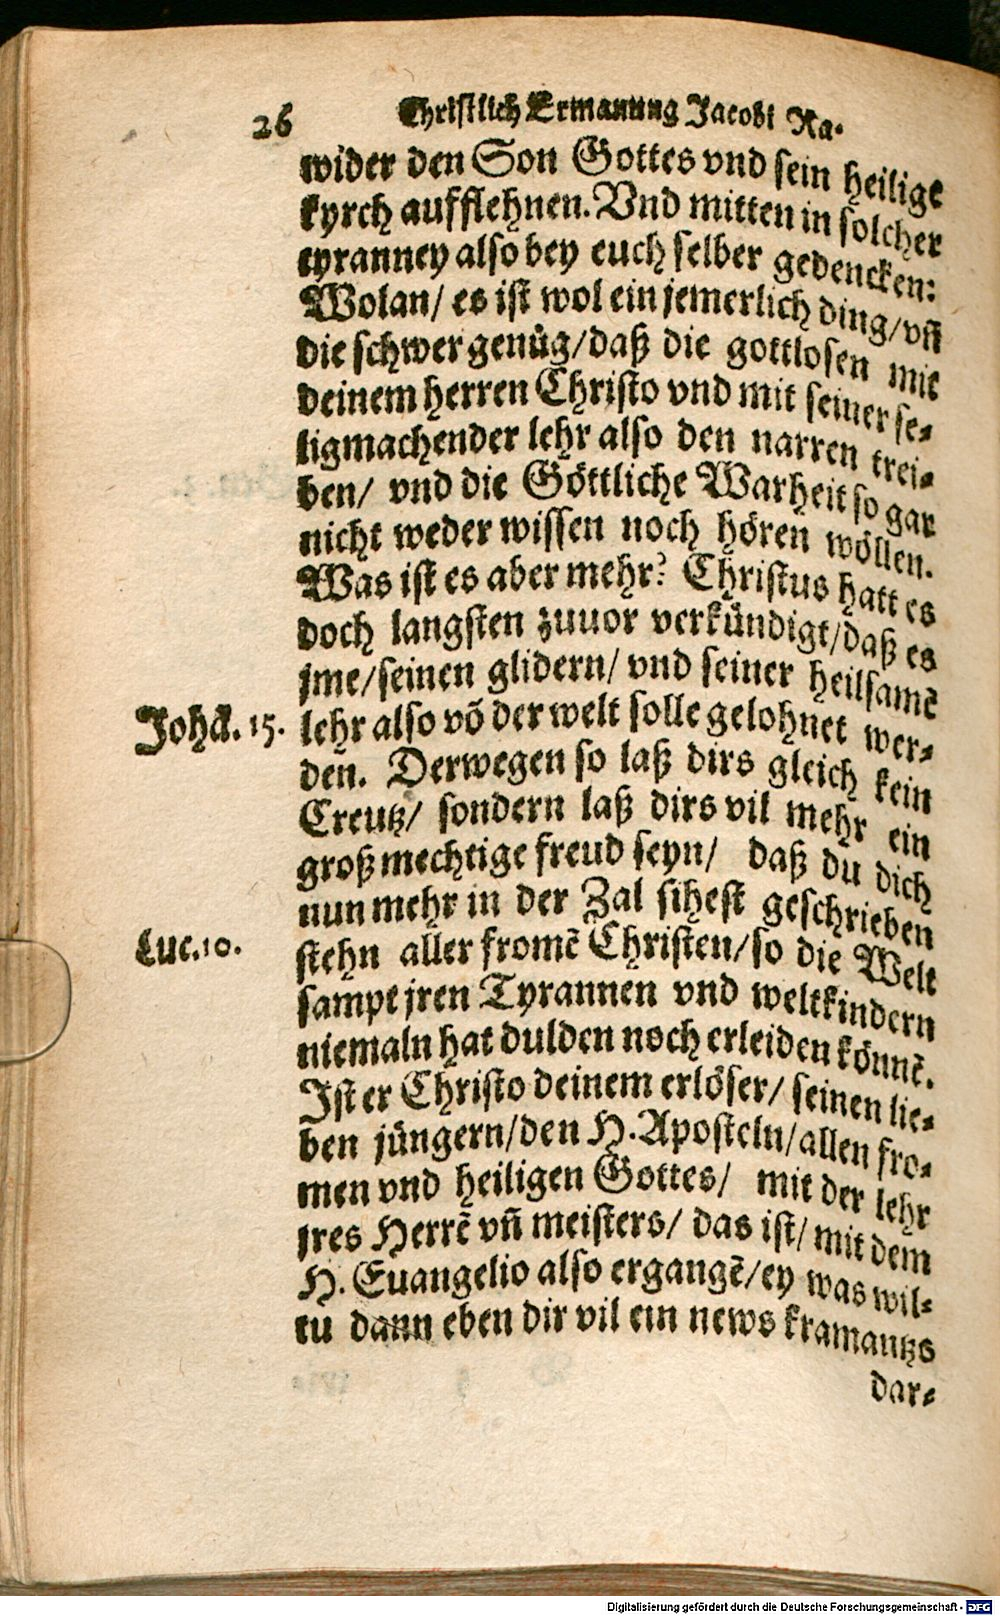 26 Christlich Ermanung Jacobi Ra-
wider den Son Gottes vnd sein heilige
kyrch aufflehnen. Vnd mitten in solcher
tyranney also bey euch selber gedencken:
Wolan/ es ist wol ein jemerlich ding/ vñ
die schwer genůg/ daß die gottlosen mit
deinem herren Christo vnd mit seiner se-
ligmachender lehr also den narren trei-
ben/ vnd die Göttliche Warheit so gar
nicht weder wissen noch hören wöllen.
Was ist es aber mehr? Christus hatt es
doch langsten zuuor verkündigt/ daß es
jme/ seinen glidern/ vnd seiner heilsamẽ
Johã. 15. lehr also võ der welt solle gelohnet wer-
den. Derwegen so laß dirs gleich kein
Creutz/ sondern laß dirs vil mehr ein
groß mechtige freud seyn/ daß du dich
nun mehr in der Zal sihest geschrieben
Luc. 10. stehn aller fromẽ Christen/ so die Welt
sampt jren Tyrannen vnd weltkindern
niemaln hat dulden noch erleiden könnẽ.
Ist er Christo deinem erlöser/ seinen lie-
ben jüngern/ den H. Aposteln/ allen fro-
men vnd heiligen Gottes/ mit der lehr
jres Herrẽ vñ meisters/ das ist/ mit dem
H. Euangelio also ergangẽ/ ey was wil-
tu dann eben dir vil ein news kramantzs
dar-
Digitalisierung gefördert durch die Deutsche Forschungsgemeinschaft - DFG